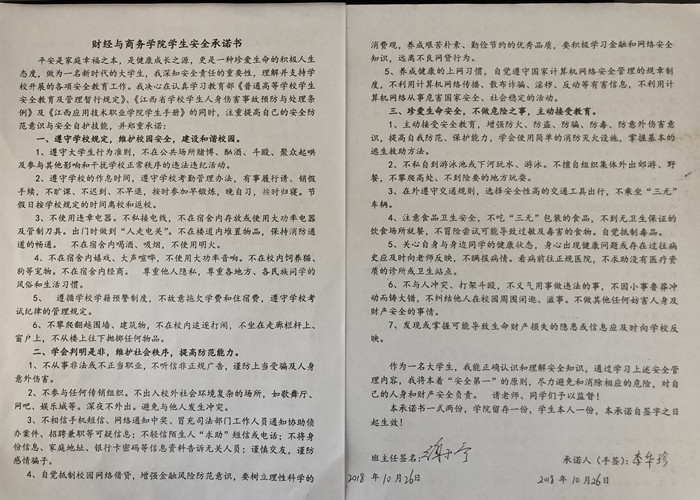 财经与商务学院学生安全承诺书
平安是家庭幸福之本,是健康成长之源,更是一种珍爱生命的积极人生
态度,做为一名新时代的大学生,我深知安全责任的重要性,理解并支持学
校开展的各项安全教育工作。我决心在认真学习教育部《普通高等学校学生
安全教育及管理暂行规定》、《江西省学校学生人身伤害事故预防与处理条
例》及《江西应用技术职业学院学生手册》的同时,注重提高自己的安全防
范意识与安全自护技能,并郑重承诺:
一、遵守学校规定,维护校园安全,建设和谐校园。
1、遵守大学生行为准则,不在公共场所赌博、酗酒、斗殴、聚众起哄
及参与其他影响和干扰学校正常秩序的违法违纪活动。
2、遵守学校的作息时间,遵守学校考勤管理办法,有事履行请、销假
手续,不旷课、不迟到、不早退,按时参加早锻炼,晚自习,按时归寝。节
假日按学校规定的时间离校和返校。
3、不使用违章电器。不私接电线,不在宿舍内存放或使用大功率电器
及管制刀具。出门时做到“人走电关”。不在楼道内堆置物品,保持消防通
道的畅通。 不在宿舍内喝酒、吸烟,不使用明火。
4、不在宿舍内嬉戏、大声喧哗,不使用大功率音响。不在校内饲养猫、
狗等宠物。不在宿舍内经商。 尊重他人隐私,尊重各地方、各民族同学的
风俗和生活习惯。
5、 遵循学校学籍预警制度,不故意拖欠学费和住宿费,遵守学校考
试纪律的管理规定。
6、不攀爬翻越围墙、建筑物,不在校内追逐打闹,不坐在走廊栏杆上、
窗户上,不从楼上往下抛掷任何物品。
二、学会判明是非,维护社会秩序,提高防范能力。
1、不从事非法或不正当职业,不听信非正规广告,谨防上当受骗及人身
意外伤害。
2、不参与任何传销组织。不出入校外社会环境复杂的场所,如歌舞厅、
网吧、娱乐城等。深夜不外出。避免与他人发生冲突。
3、不相信手机短信、网络通知中奖、冒充司法部门工作人员通知协助侦
办案件、招聘兼职等可疑信息;不轻信陌生人“求助”短信或电话;不将身
份信息、家庭地址、银行卡密码等信息资料告诉无关人员;谨慎交友,谨防
感情骗子。
4、自觉抵制校园网络借贷,增强金融风险防范意识,要树立理性科学的
消费观,养成艰苦朴素、勤俭节约的优秀品质,要积极学习金融和网络安全
知识,远离不良网贷行为。
5、养成健康的上网习惯,自觉遵守国家计算机网络安全管理的规章制
度,不利用计算机网络传播、散布诈骗、淫秽、反动等有害信息,不利用计
算机网络从事危害国家安全、社会稳定的活动。
三、珍爱生命安全,不做危险之事,主动接受教育。
1、主动接受安全教育,增强防火、防盗、防骗、防毒、防意外伤害意
识,提高自我防范、保护能力,学会使用简单的消防灭火设施,掌握基本的
逃生救助方法。
2、不私自到游泳池或下河玩水、游泳。不擅自组织集体外出郊游、野
餐,不攀爬高处、不到险要的地方玩耍。
3、在外遵守交通规则,选择安全性高的交通工具出行,不乘坐“三无”
车辆。
4、注意食品卫生安全,不吃“三无”包装的食品,不到无卫生保证的
饮食场所就餐,不冒险尝试可能导致过敏及毒害的食物。自觉抵制毒品。
5、关心自身与身边同学的健康状态,身心出现健康问题或存在过往病
史应及时向老师反映,不瞒报病情。看病前往正规医院,不求助没有医疗资
质的诊所或卫生站点。
6、不与人冲突、打架斗殴,不义气用事做违法的事,不因小事鲁莽冲
动而铸大错,不纠结他人在校园周围闲逛、滋事。不做其他任何妨害人身及
财产安全的事情。
7、发现或掌握可能导致生命财产损失的隐患或信息应及时向学校反
映。
作为一名大学生,我能正确认识和理解安全知识,通过学习上述安全管
理内容,我将本着“安全第一”的原则,尽力避免和消除相应的危险,对自
己的人身和财产安全负责。 请老师、同学们予以监督!
本承诺书一式两份,学院留存一份,学生本人一份,本承诺自签字之日
起生效!
班主任签名: 承诺人(手签):李华珍
2018 年 10 月 26日 2018 年 10 月 26日